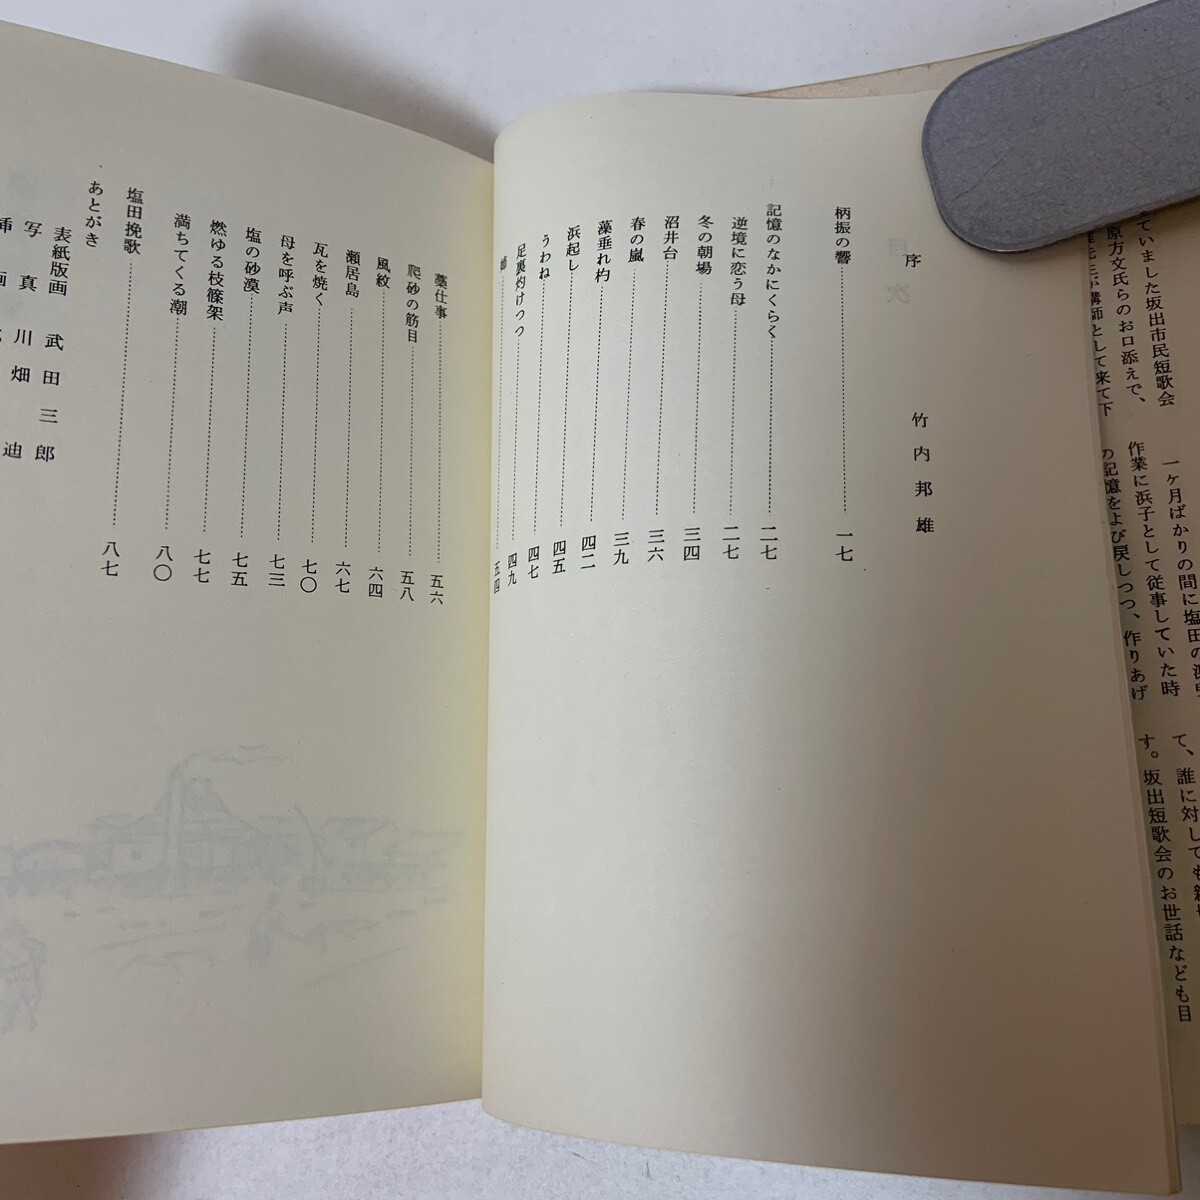 ていました坂出市民短歌会
原方文氏らのお口添えで、
講師として来て下
一ヶ月ばかりの間に塩田の
作業に浜子として従事していた時
の記憶をよび戻しつつ、作りあげ
て、誰に対しても
す。坂出短歌会のお世話なども目
目次
序 竹内邦雄
柄振の響 一七
記憶のなかにくらく 二七
逆境に恋う母 二七
冬の朝場 三四
沼井台 三六
春の嵐 三九
藻垂れ杓 四二
浜起し 四五
うわね 四七
足裏灼けつつ 四九
五四
藁仕事 五六
爬砂の筋目 五八
風紋 六四
瀬居島 六七
瓦を焼く 七〇
母を呼ぶ声 七三
塩の砂漠 七五
燃ゆる枝篠架 七七
満ちてくる潮 八〇
塩田挽歌 八七
あとがき
表紙版画 武田三郎
写真 川畑迪
挿画